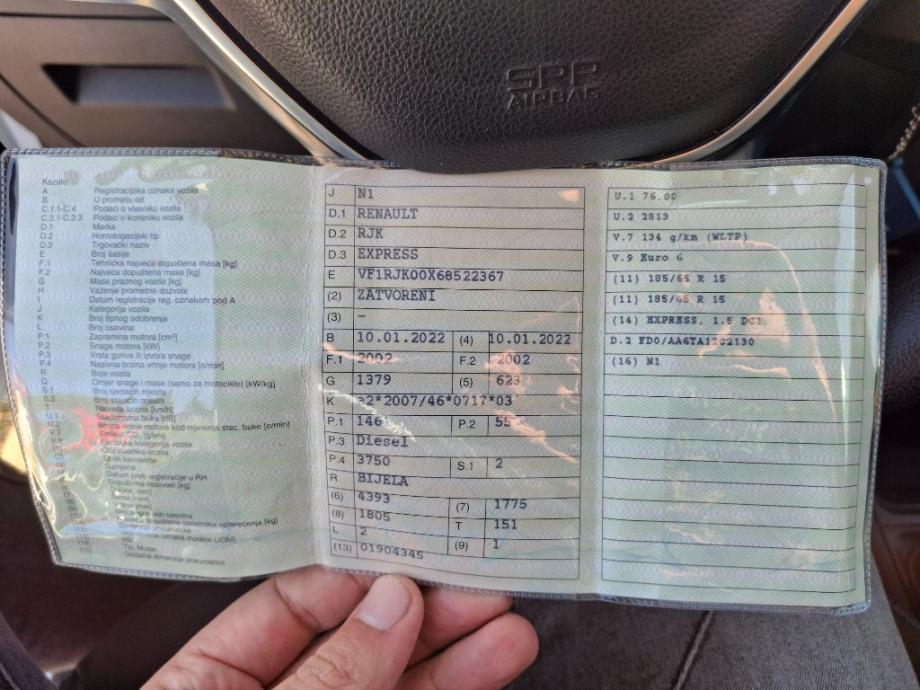 SRP
AIRBAG
Kazalo:
A Registracijska oznaka vozila
B U prometu od
C.1.1-C.4 Podaci o vlasniku vozila
C.3.1-C.3.3 Podaci o korisniku vozila
D.1 Marka
D.2 Homologacijski tip
D.3 Trgovački naziv
E Broj šasije
F.1 Tehnička najveća dopuštena masa [kg]
F.2 Najveća dopuštena masa [kg]
G Masa praznog vozila [kg]
H Važenje prometne dozvole
I Datum registracije reg. oznakom pod A
J Kategorija vozila
K Broj tipnog odobrenja
L Broj osovina
P.1 Zapremina motora [cm³]
P.2 Snaga motora [kW]
P.3 Vrsta goriva ili izvora snage
P.4 Nazivna brzina vrtnje motora [o/min]
R Boja vozila
Q Omjer snage i mase (samo za motocikle) [kW/kg]
S.1 Broj sjedećih mjesta
S.2 Broj stajaćih mjesta
T Najveća brzina [km/h]
U.1 Stacionarna buka [dB]
U.2 motora kod mjerenja stac. buke [o/min]
V.7 CO₂ [g/km]
V.9 kategorija vozila
vozila
Oblik karoserije
Namjena
Datum prve registracije u RH
Dopuštena nosivost [kg]
osovinska opterećenja [kg]
oznaka modela (JOM)
Tip, Model
dimenzije pneumatika
J N1
D.1 RENAULT
D.2 RJK
D.3 EXPRESS
E VF1RJK00X68522367
(2) ZATVORENI
(3) –
B 10.01.2022 (4) 10.01.2022
F.1 2002 F.2 2002
G 1379 (5) 623
K e2*2007/46*0717*03
P.1 146 P.2 55
P.3 Diesel
P.4 3750 S.1 2
R BIJELA
(6) 4393 (7) 1775
(8) 1805 T 151
L 2 (9) 1
(13) 01904345
U.1 76.00
U.2 2813
V.7 134 g/km (WLTP)
V.9 Euro 6
(11) 185/65 R 15
(11) 185/65 R 15
(14) EXPRESS, 1.5 DCI
D.2 FD0/AA6TA12C2130
(16) N1